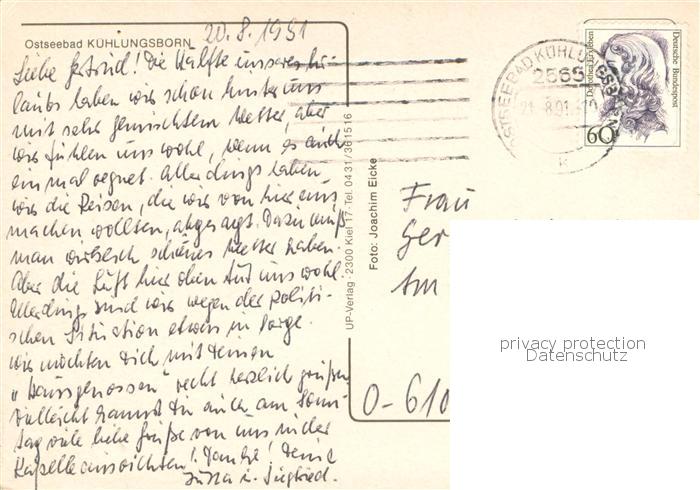 Ostseebad KÜHLUNGSBORN
20.8.1991
Liebe Gertrud! Die Hälfte unseres Ur-
laubs haben wir schon hinter uns
mit sehr gemischtem Wetter, aber
wir fühlen uns wohl, wenn es auch
einmal regnet. Allerdings haben
wir die Reisen, die wir von hier aus
machen wollten, abgesagt. Dazu muß
man wirklich schönes Wetter haben.
Aber die Luft hier oben tut uns wohl.
Allerdings sind wir wegen der politi-
schen Situation etwas in Sorge.
Wir möchten Dich mit Deinen
"Hausgenossen" recht herzlich grüßen
Vielleicht kannst Du auch am Sonn-
tag viele liebe Grüße von uns in der
Kapelle ausrichten! Danke! Deine
u. Siegfried.
UP-Verlag · 2300 Kiel 17 · Tel. 04 31/36 15 16
Foto: Joachim Eicke
OSTSEEBAD KÜHLUNGSBORN
2565
21.-8.91
k
Dorothea Erxleben
Deutsche Bundespost
60
Frau
Ger
Am
O-610
privacy protection
Datenschutz